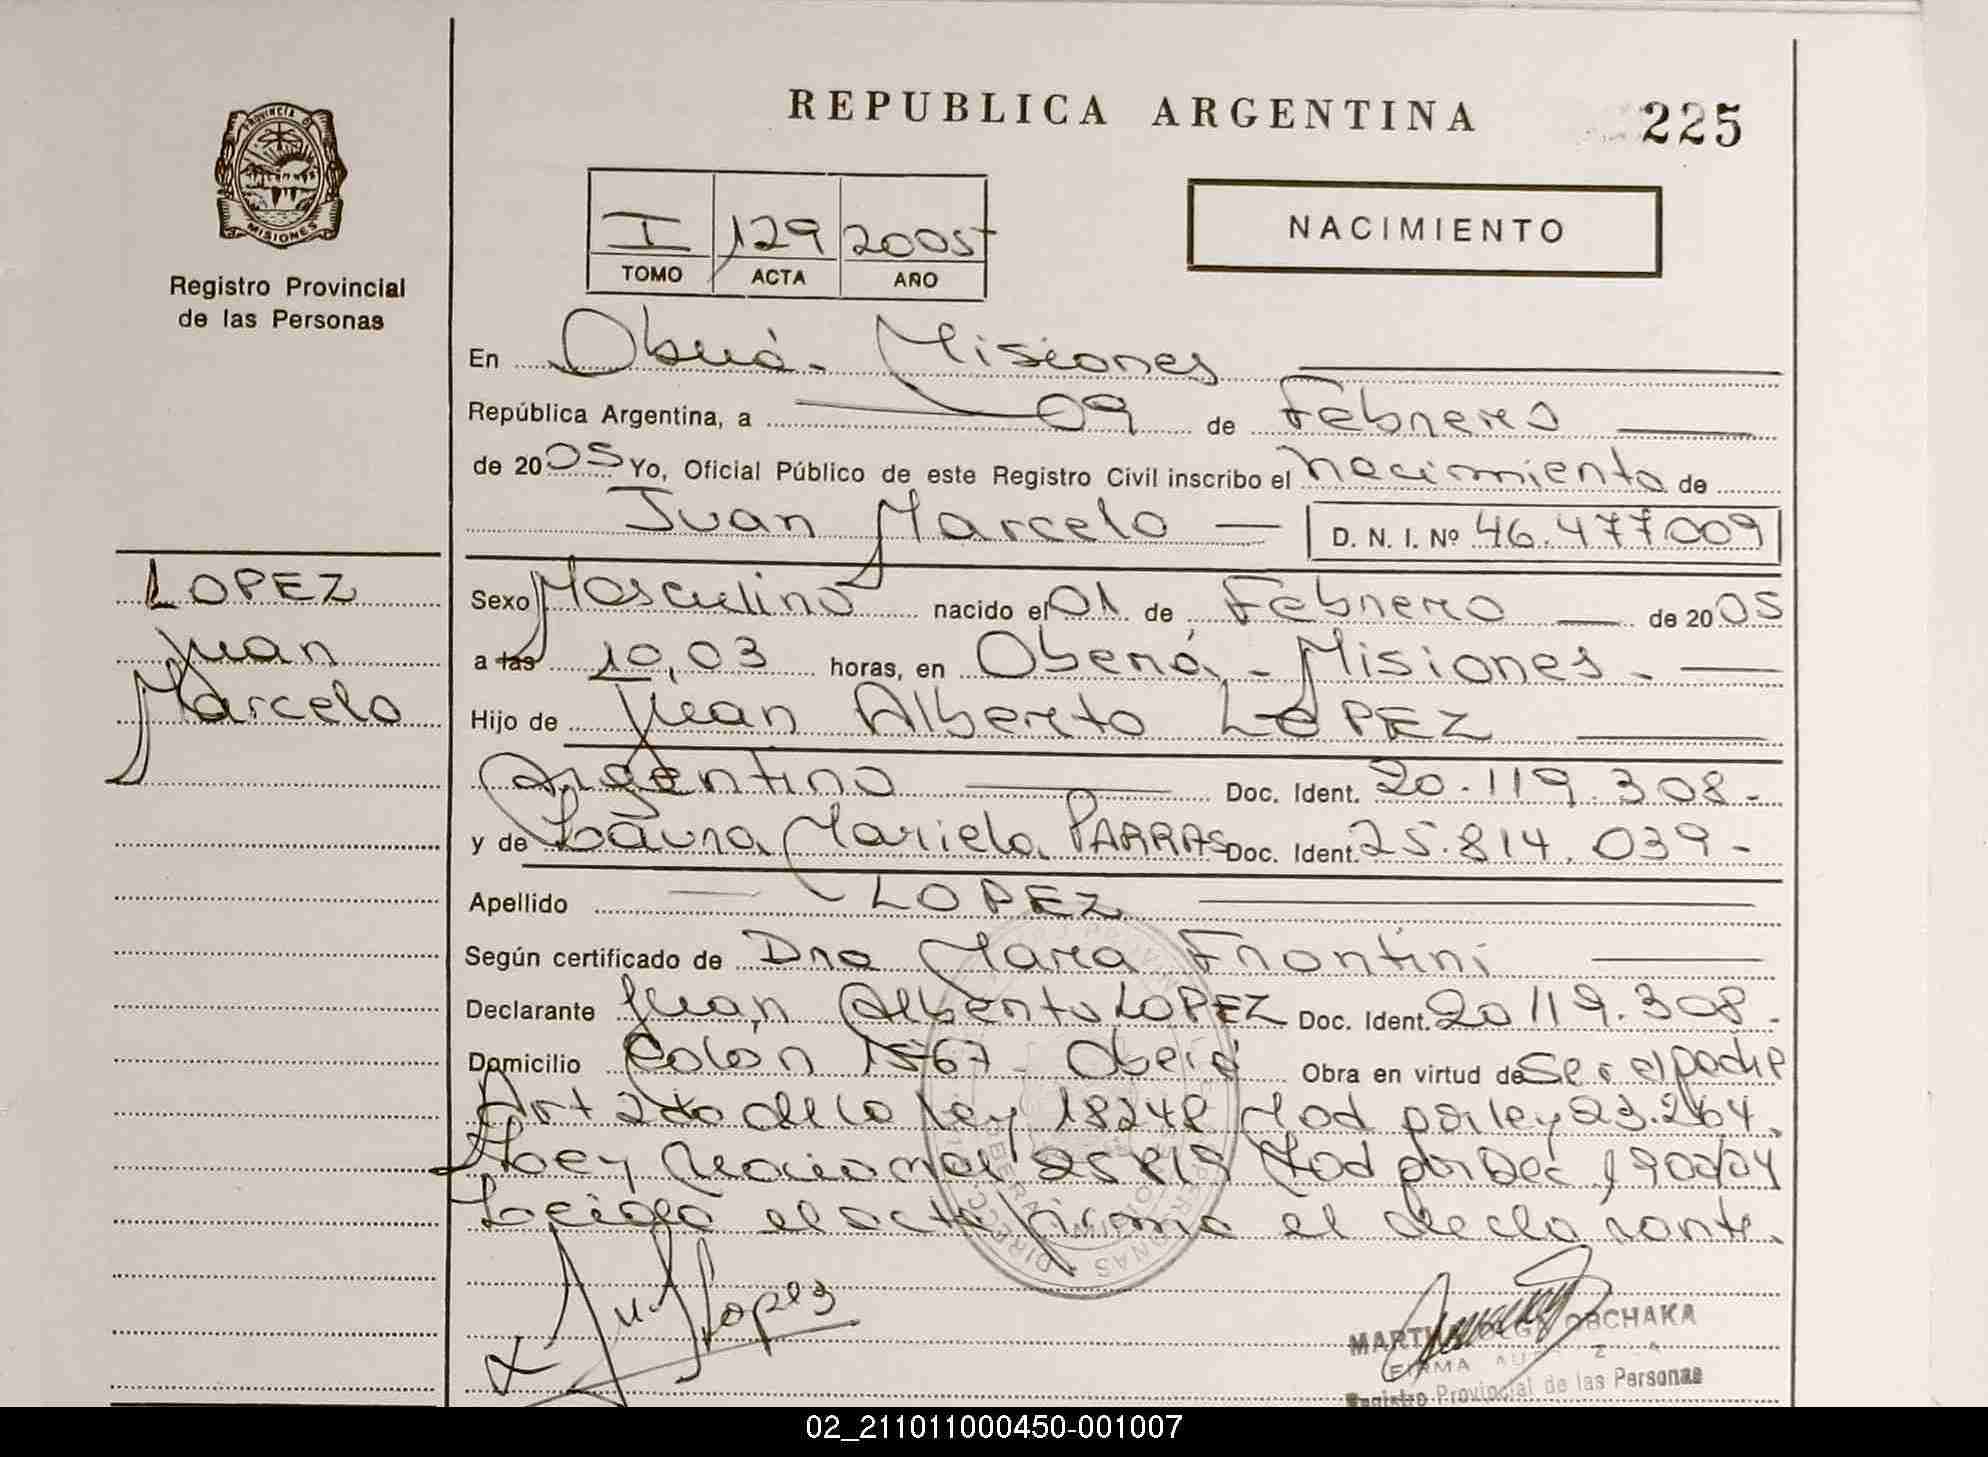 REPUBLICA ARGENTINA
225
PROVINCIA DE
MISIONES
Registro Provincial
de las Personas
I 129 2005
TOMO ACTA AÑO
NACIMIENTO
En Oberá. Misiones
República Argentina, a 09 de Febrero
de 2005 Yo, Oficial Público de este Registro Civil inscribo el nacimiento de
Juan Marcelo D. N. I. Nº 46.477.009
LOPEZ
Juan
Marcelo
Sexo Masculino nacido el 01 de Febrero de 2005
a las 10,03 horas, en Oberá - Misiones.
Hijo de Juan Alberto LOPEZ
Argentino Doc. Ident. 20.119.308.-
y de Laura Mariela PARRAS Doc. Ident. 25.814.039-
Apellido LOPEZ
Según certificado de Dra Mara Frontini
Declarante Juan Alberto LOPEZ Doc. Ident. 20119.308.
Domicilio Colón 1567 - Oberá Obra en virtud de Ser el padre
Art 2do de la Ley 18248 Mod por ley 23.264.
Ley Nacional 25819 Mod por Dec 1900/04
Leida el acta firma el declarante.
Ju. Lopez
Registro Provincial de las Personas
02_211011000450-001007